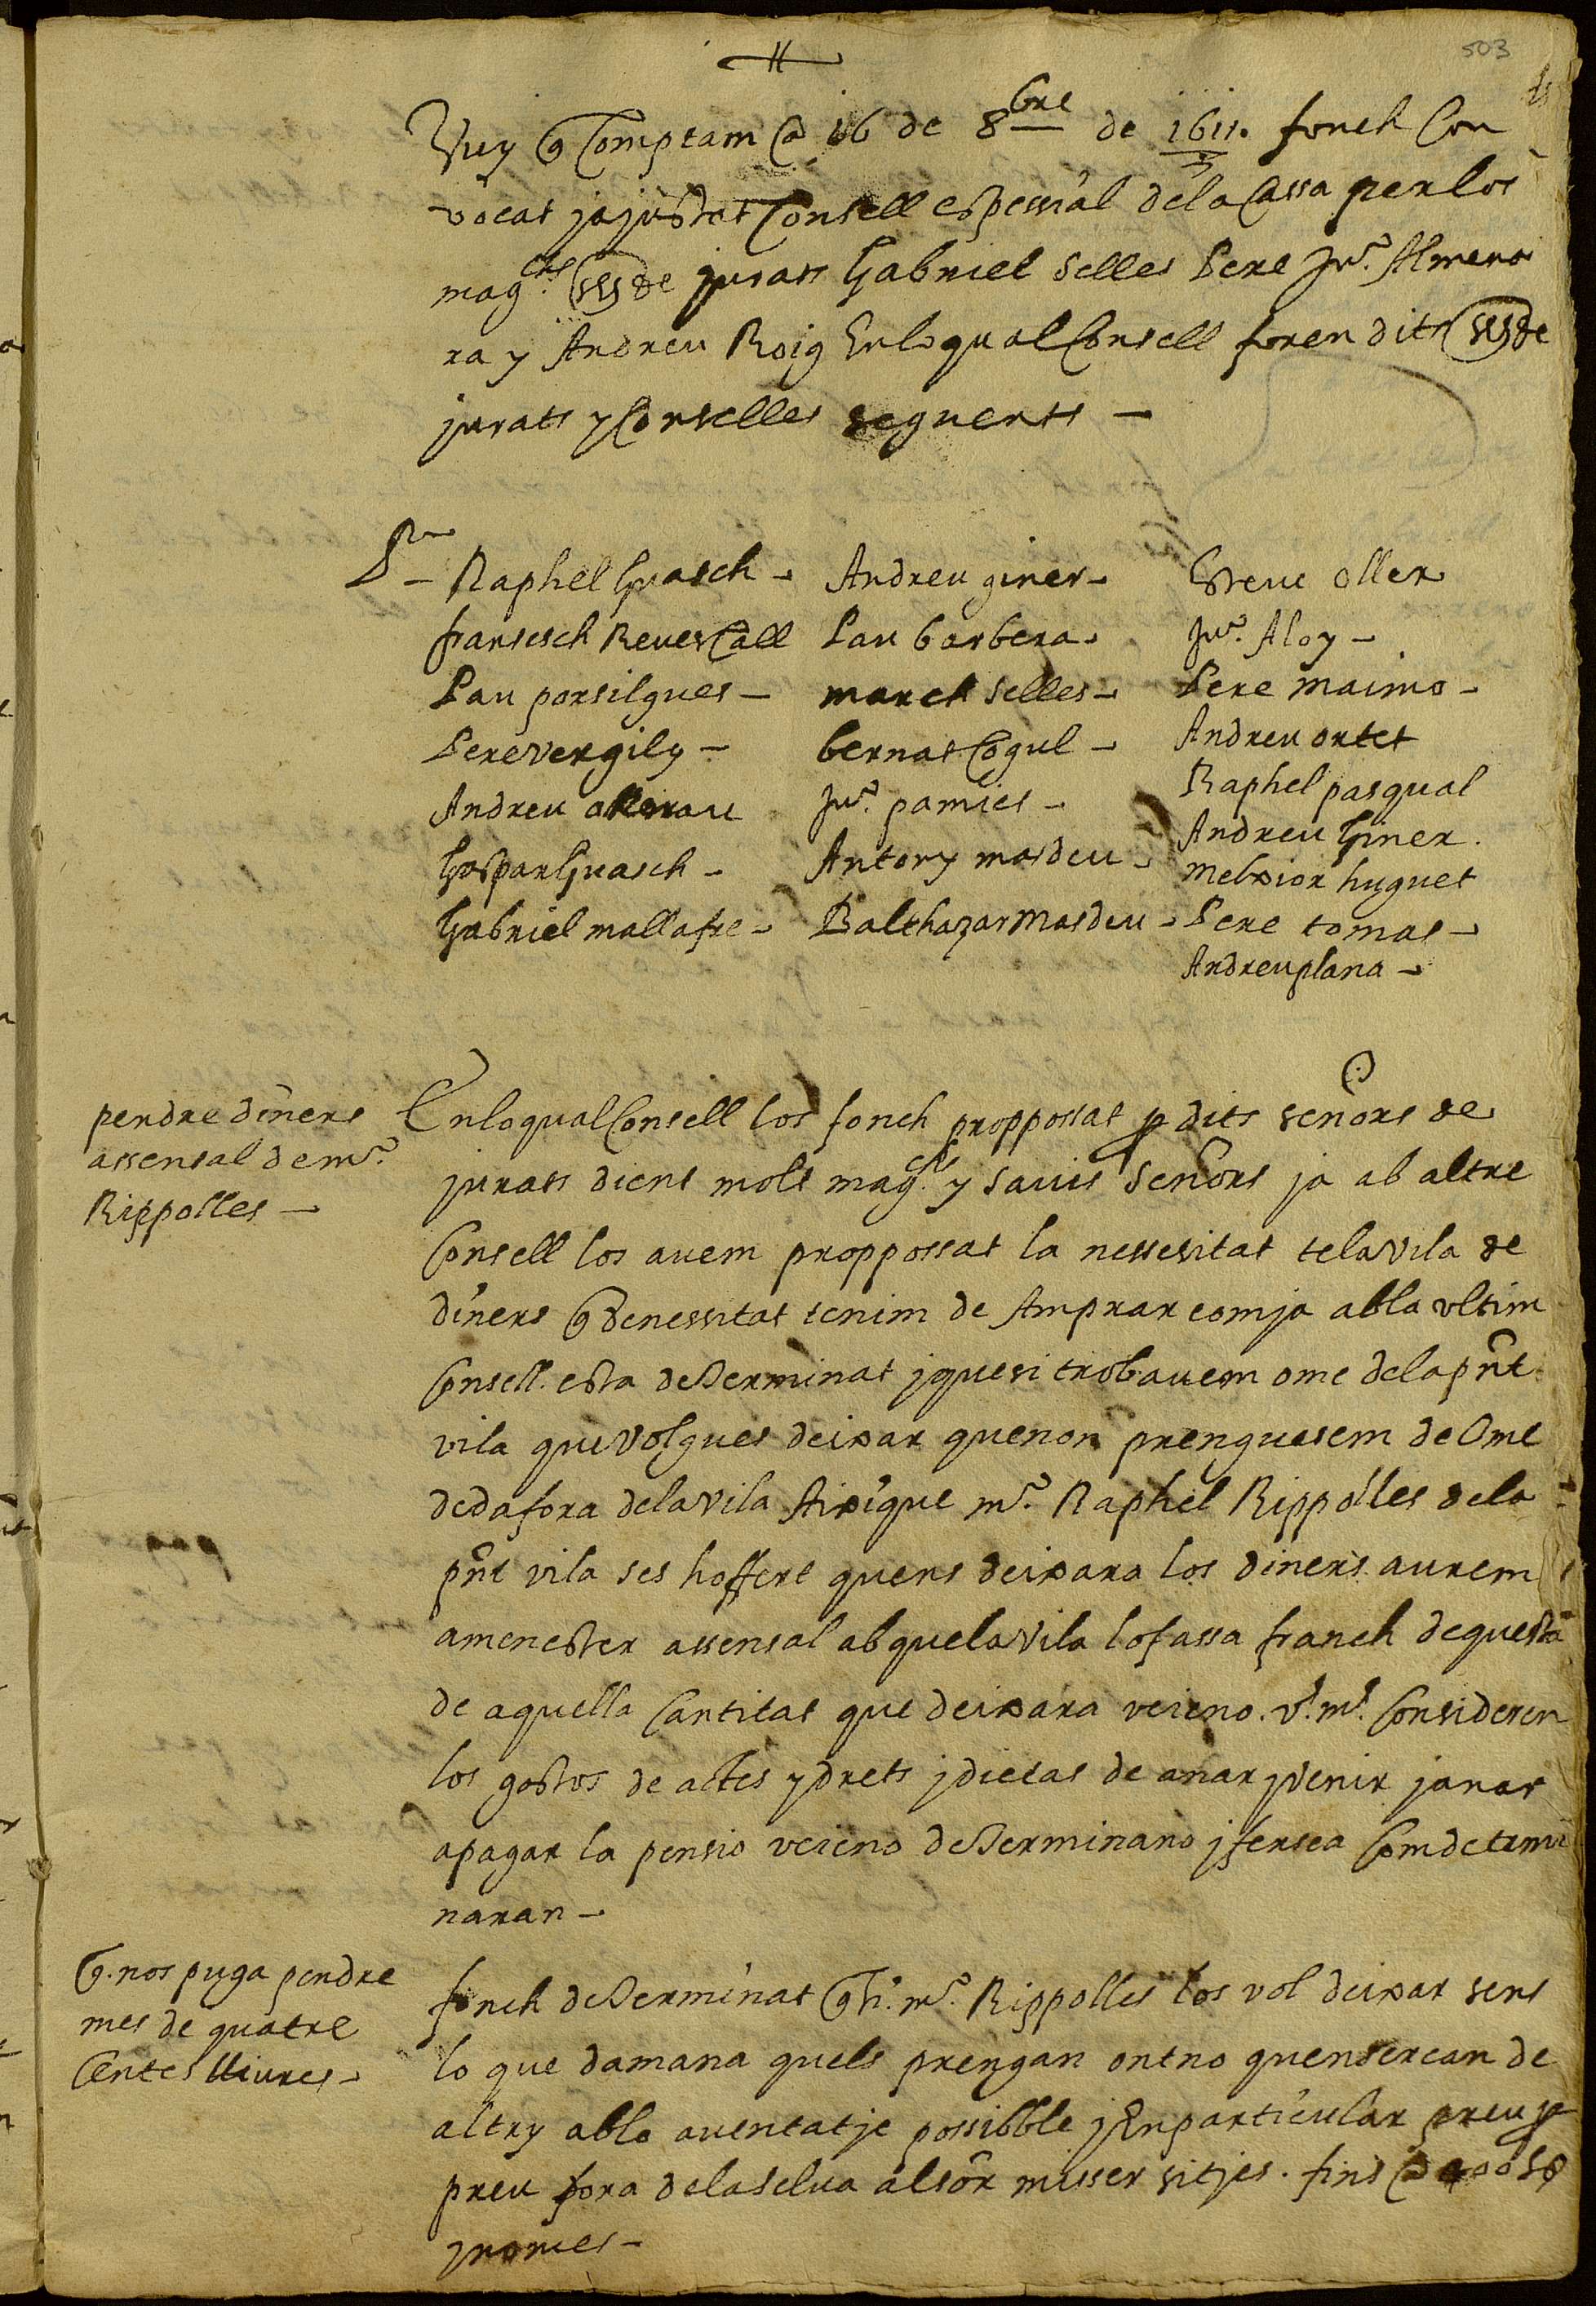 503
Vuy q Comptam a 16 de 8bre de 1611. fonch Con
vocat j ajustat Consell espessial de la Cassa per los
mag.chs ssrs de jurats Gabriel selles Pere Jua. Almena
ra y Andreu Roig En lo qual Consell foren dits ssrs de
jurats y Conselles seguents —
Pº — Raphel Guasch —
fransesch Reuescall
Pau porsilgues —
Pere vergily —
Andreu
Gaspar Guasch —
Gabriel mallafre —
Andreu giner —
Pau barbera —
march selles —
bernat Cogul —
Jua. pamies —
Antony masdeu —
Balthazar Masdeu —
Esteue oller
Jua. Aloy —
Pere maimo —
Andreu ortet
Raphel pasqual
Andreu Giner.
Melxior huguet
Pere tomas —
Andreu plana —
pendre diners
assensal de mº.
Rippolles —
En lo qual Consell los fonch proppossat p dits señors de
jurats diens molt mag.chs y sauis señors ja ab altre
Consell los auem proppossat la nessesitat te la vila de
diners q de nessitat tenim de Amprar com ja ab la vltim
Consell. esta determinat j que si trobauem ome de la pnt
vila que volgues deixar que non prenguesem de Ome
de dafora de la vila Aixi que mº. Raphel Rippolles de la
pnt vila ses hoffert quens deixara los diners aurem
amenester assensal ab que la vila lo fassa franch de questa
de aquella Cantitat que deixara veieno. v.s m.s Consideren
los gastos de actes y drets j dietas de anar j venir j anar
apagar la pensio veieno determinano j fersea Com determi
naran —
q. nos puga pendre
mes de quatre
Centes lliures —
fonch determinat q si. mº. Rippolles los vol deixar sens
lo que damana quels prengan ont no quen sercan de
altry ab lo auentatje possibble j En particular preu p
preu fora de la selua al sor misser sitjes. fins a 400 ll
j no mes —